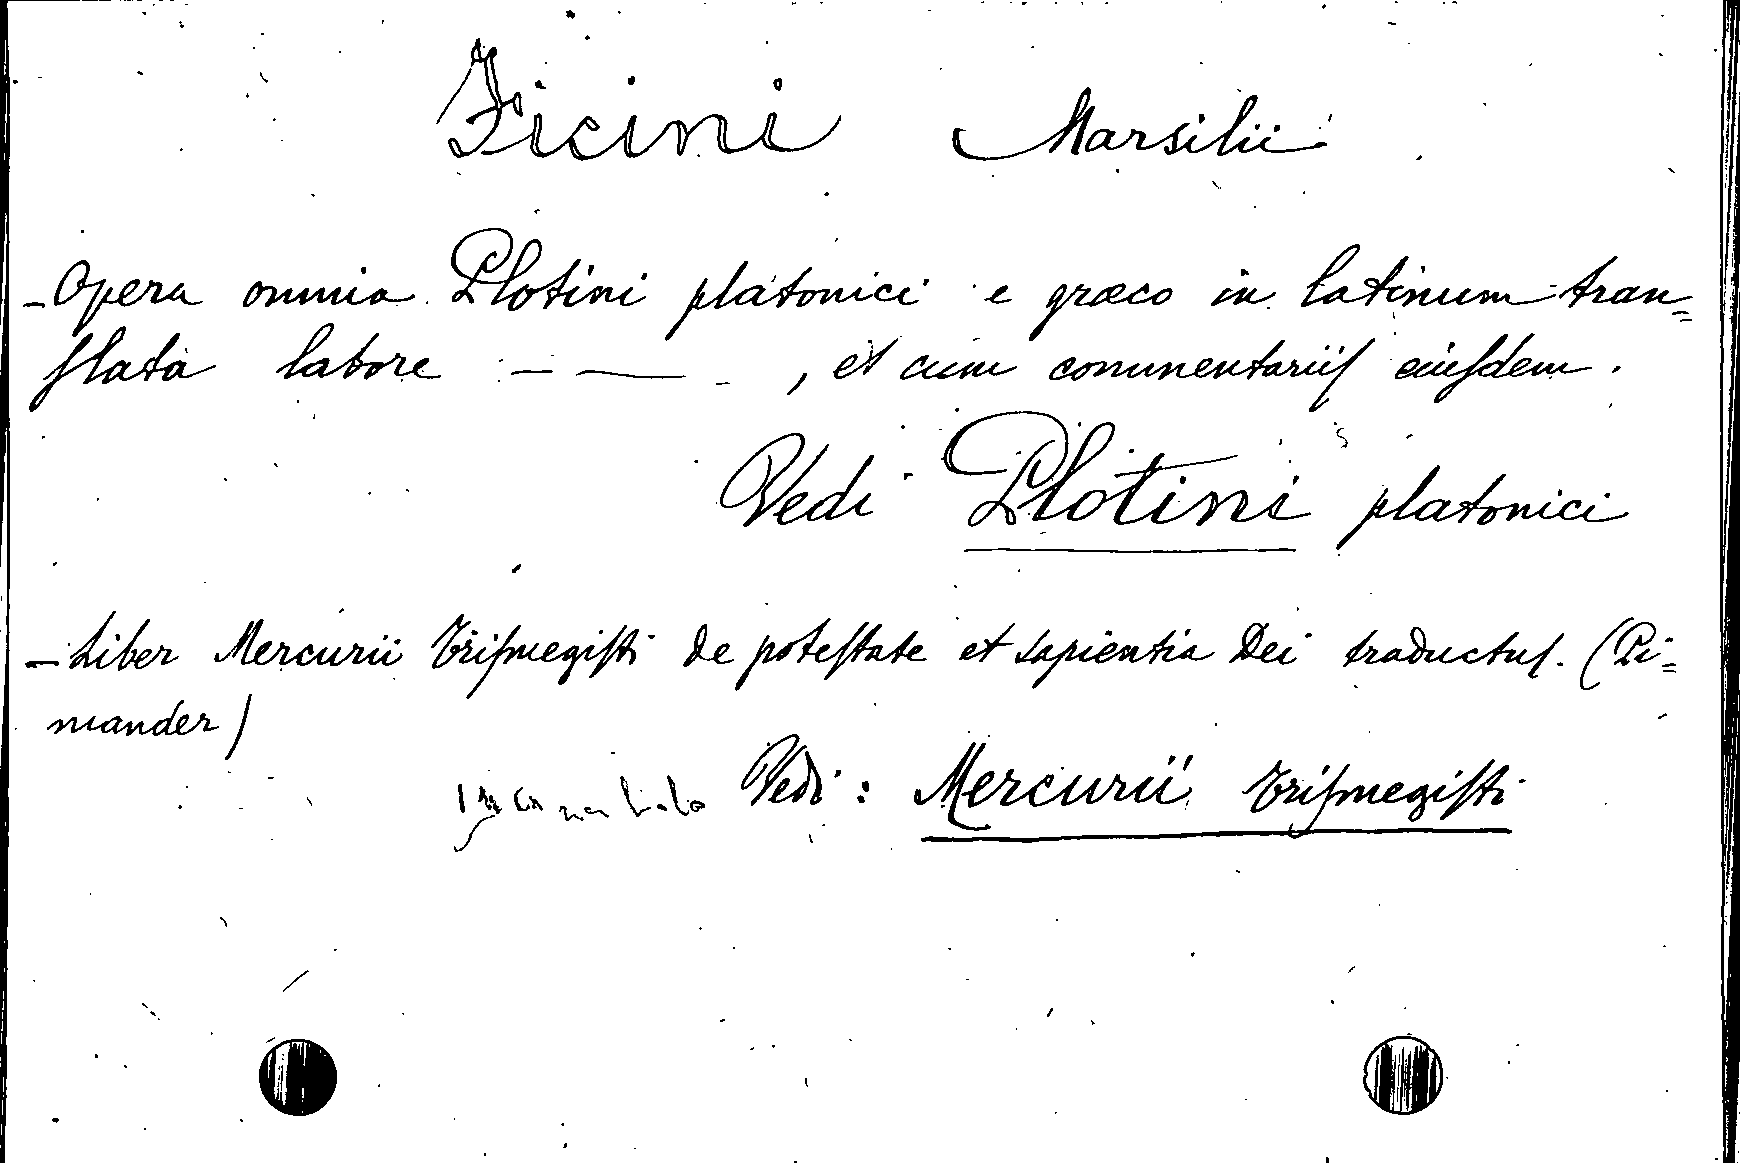 Ficini Marsilii
- Opera omnia Plotini platonici e græco in latinum tran=
ſlata labore - — - , et cum commentariiſ eiuſdem.
Vedi Plotini platonici
- Liber Mercurii Triſmegiſti de poteſtate et sapientia Dei traductuſ. (Pi=
mander)
Vedi: Mercurii Triſmegiſti